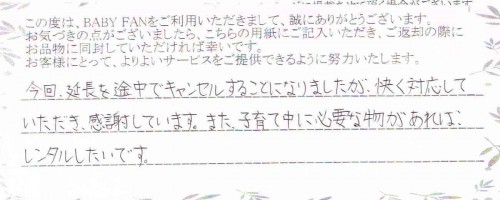 この度は、BABY FANをご利用いただきまして、誠にありがとうございます。
お気づきの点がございましたら、こちらの用紙にご記入いただき、ご返却の際に
お品物に同封していただければ幸いです。
お客様にとって、よりよいサービスをご提供できるように努力いたします。
今回、延長を途中でキャンセルすることになりましたが、快く対応して
いただき、感謝しています。また、子育て中に必要な物があれば、
レンタルしたいです。